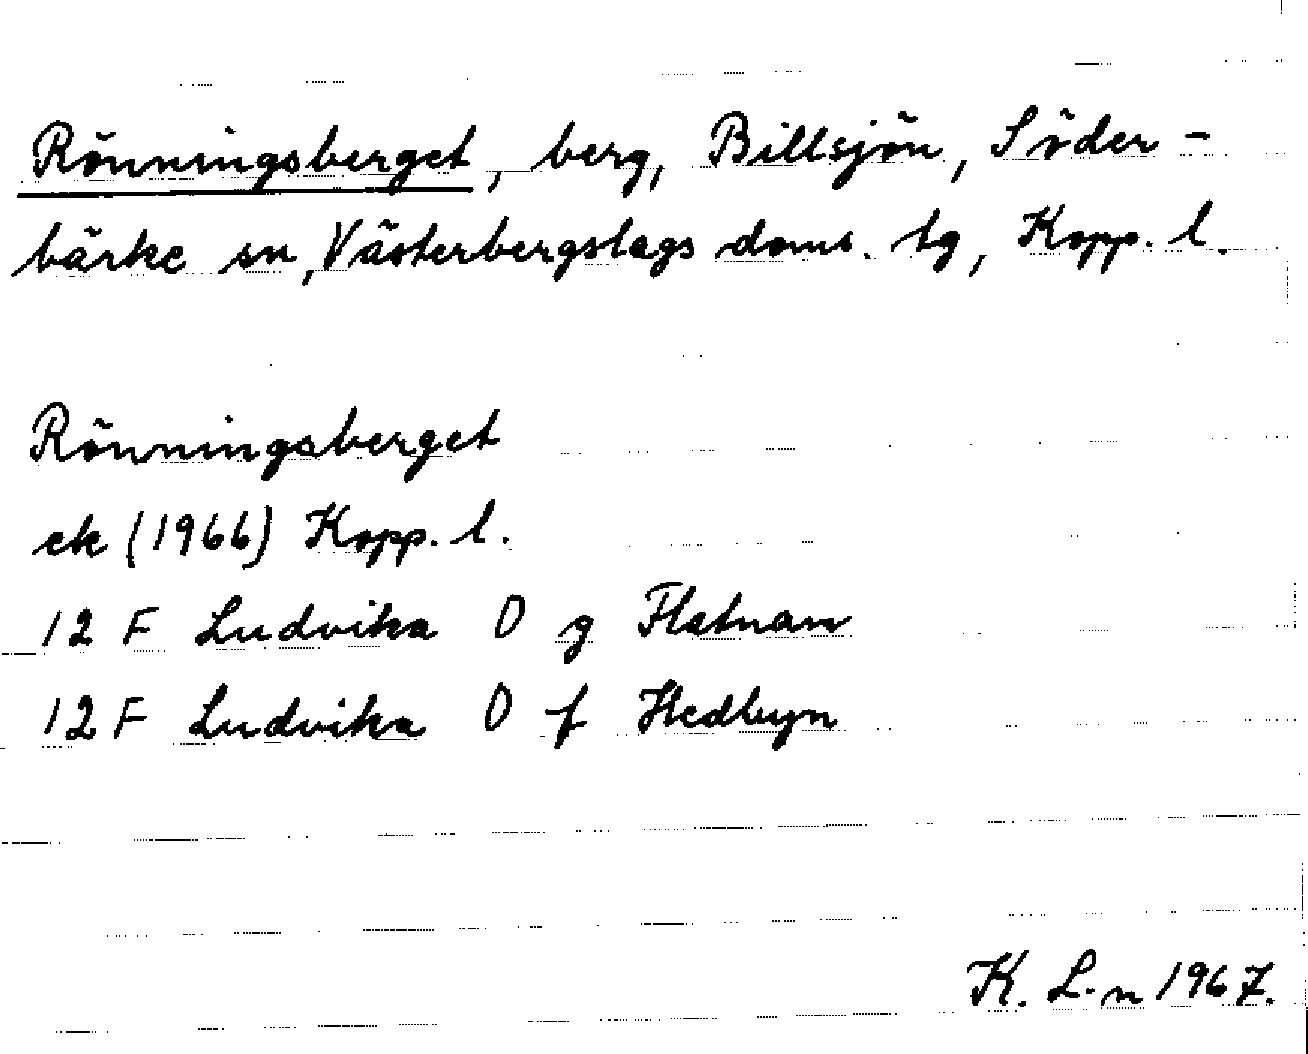 Rönningsberget, berg, Billsjön, Söder-
bärke sn, Västerbergslags doms. tg, Kopp. l.
Rönningsberget
ek (1966) Kopp. l.
12 F Ludvika 0 g Flatnan
12 F Ludvika 0 f Hedbyn
K. L-n 1967.